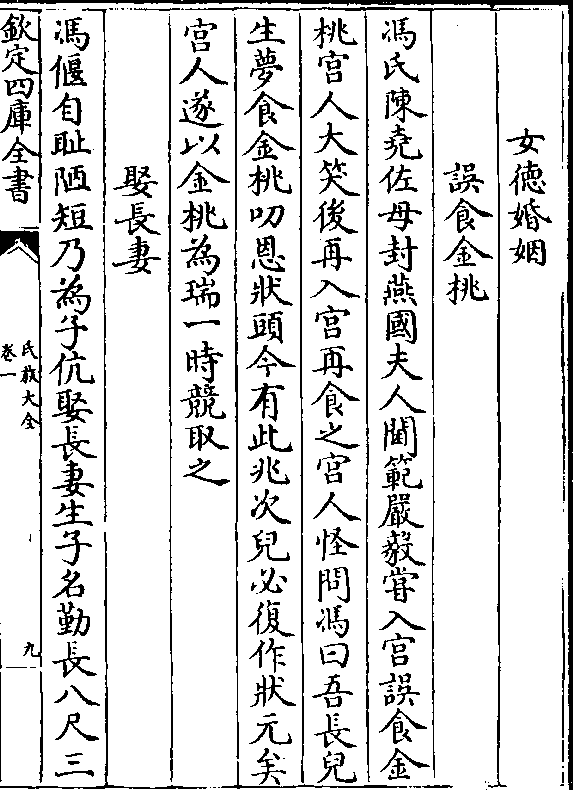 女徳婚姻
誤食金桃
馮氏陳堯佐母封燕國夫人閫範嚴毅甞入宮誤食金
桃宮人大笑後再入宮再食之宮人怪問馮曰吾長兒
生夢食金桃叨恩狀頭今有此兆次兒必復作狀元矣
宮人遂以金桃為瑞一時競取之
娶長妻
馮偃自耻陋短乃為子伉娶長妻生子名勤長八尺三
欽定四庫全書
氏族大全
卷一
九